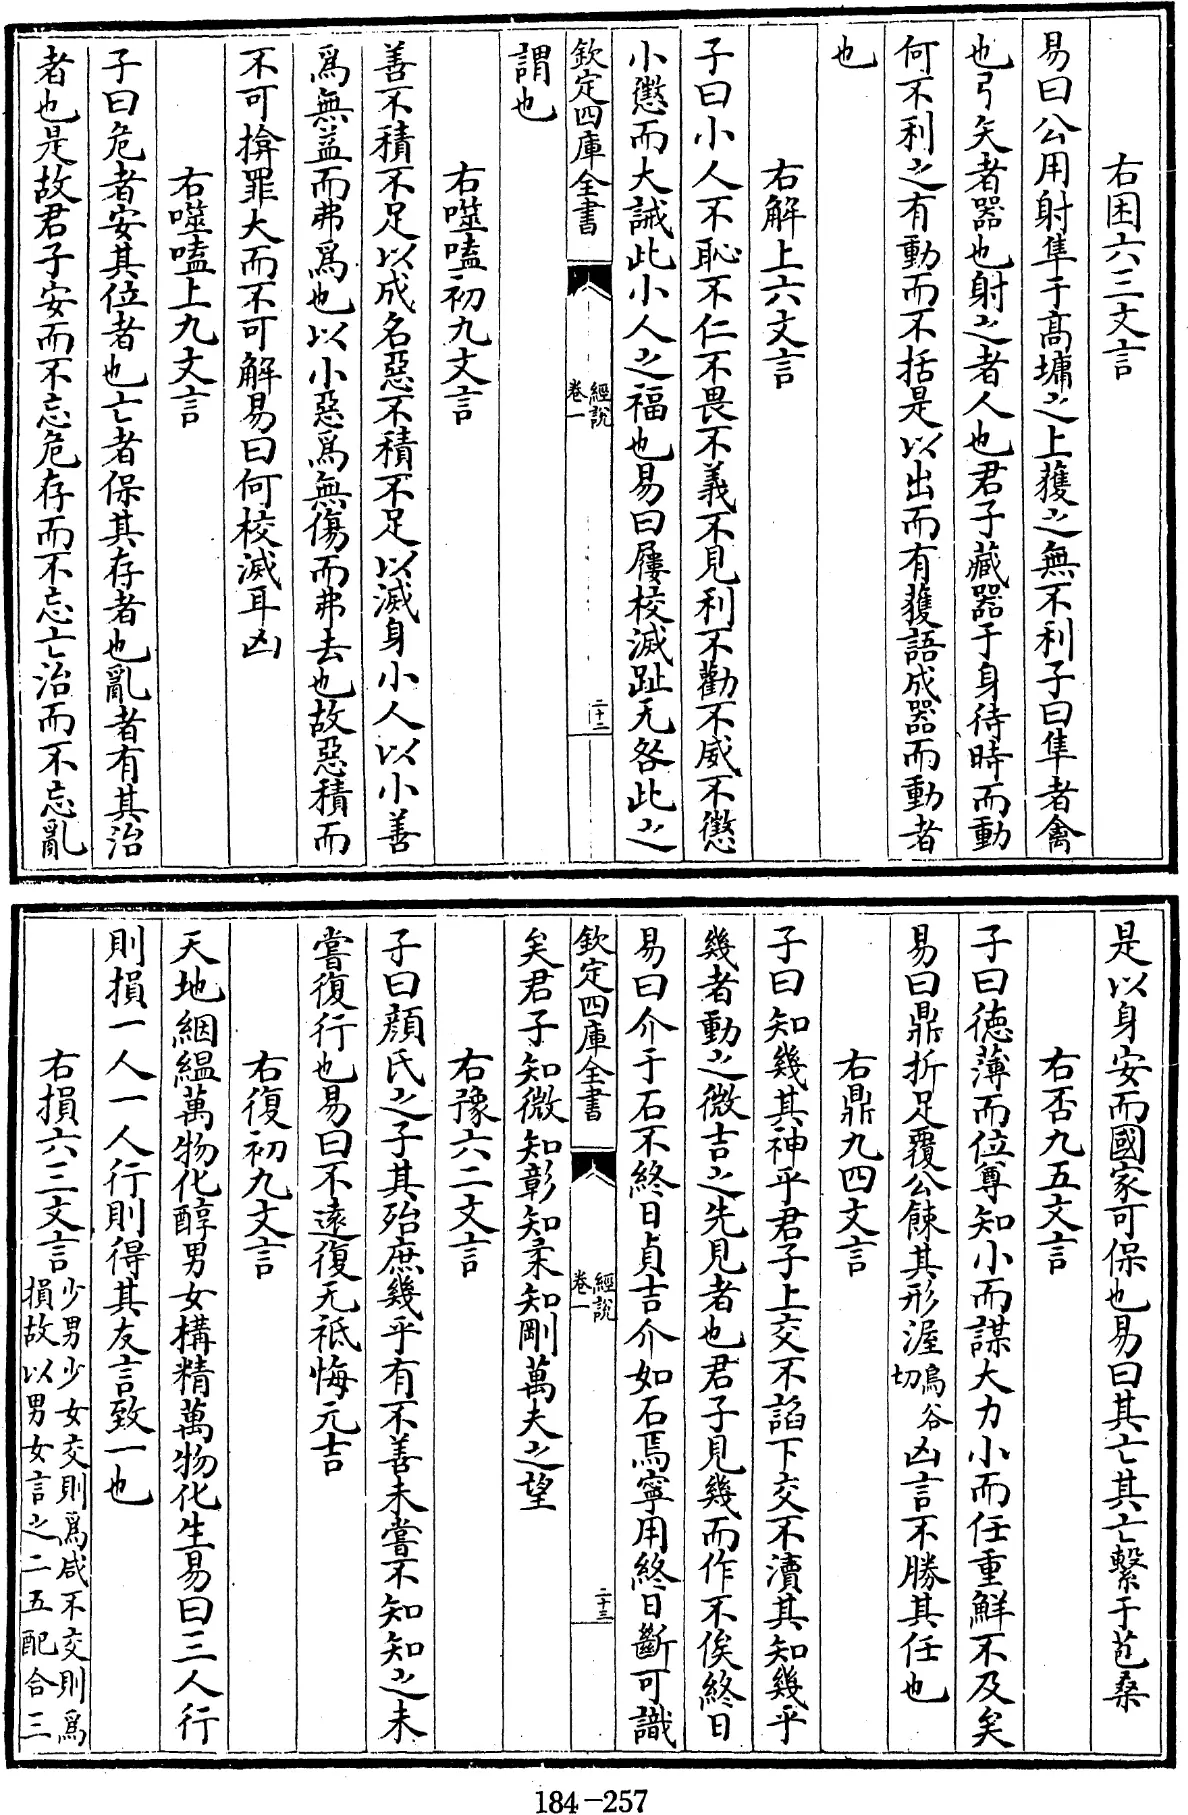 右困六三文言
易曰公用射隼于高墉之上獲之無不利子曰隼者禽
也弓矢者器也射之者人也君子藏器于身待時而動
何不利之有動而不括是以出而有獲語成器而動者
也
右解上六文言
子曰小人不恥不仁不畏不義不見利不勸不威不懲
小懲而大誡此小人之福也易曰屨校滅趾无咎此之
欽定四庫全書
經說
卷一
二十二
謂也
右噬嗑初九文言
善不積不足以成名惡不積不足以滅身小人以小善
爲無益而弗爲也以小惡爲無傷而弗去也故惡積而
不可揜罪大而不可解易曰何校滅耳凶
右噬嗑上九文言
子曰危者安其位者也亡者保其存者也亂者有其治
者也是故君子安而不忘危存而不忘亡治而不忘亂
是以身安而國家可保也易曰其亡其亡繫于苞桑
右否九五文言
子曰德薄而位尊知小而謀大力小而任重鮮不及矣
易曰鼎折足覆公餗其形渥烏谷切凶言不勝其任也
右鼎九四文言
子曰知幾其神乎君子上交不諂下交不瀆其知幾乎
幾者動之微吉之先見者也君子見幾而作不俟終日
易曰介于石不終日貞吉介如石焉寧用終日斷可識
欽定四庫全書
經說
卷一
二十三
矣君子知微知彰知柔知剛萬夫之望
右豫六二文言
子曰顏氏之子其殆庶幾乎有不善未嘗不知知之未
嘗復行也易曰不遠復无祗悔元吉
右復初九文言
天地絪縕萬物化醇男女構精萬物化生易曰三人行
則損一人一人行則得其友言致一也
右損六三文言
少男少女交則爲咸不交則爲
損故以男女言之二五配合三
184-257